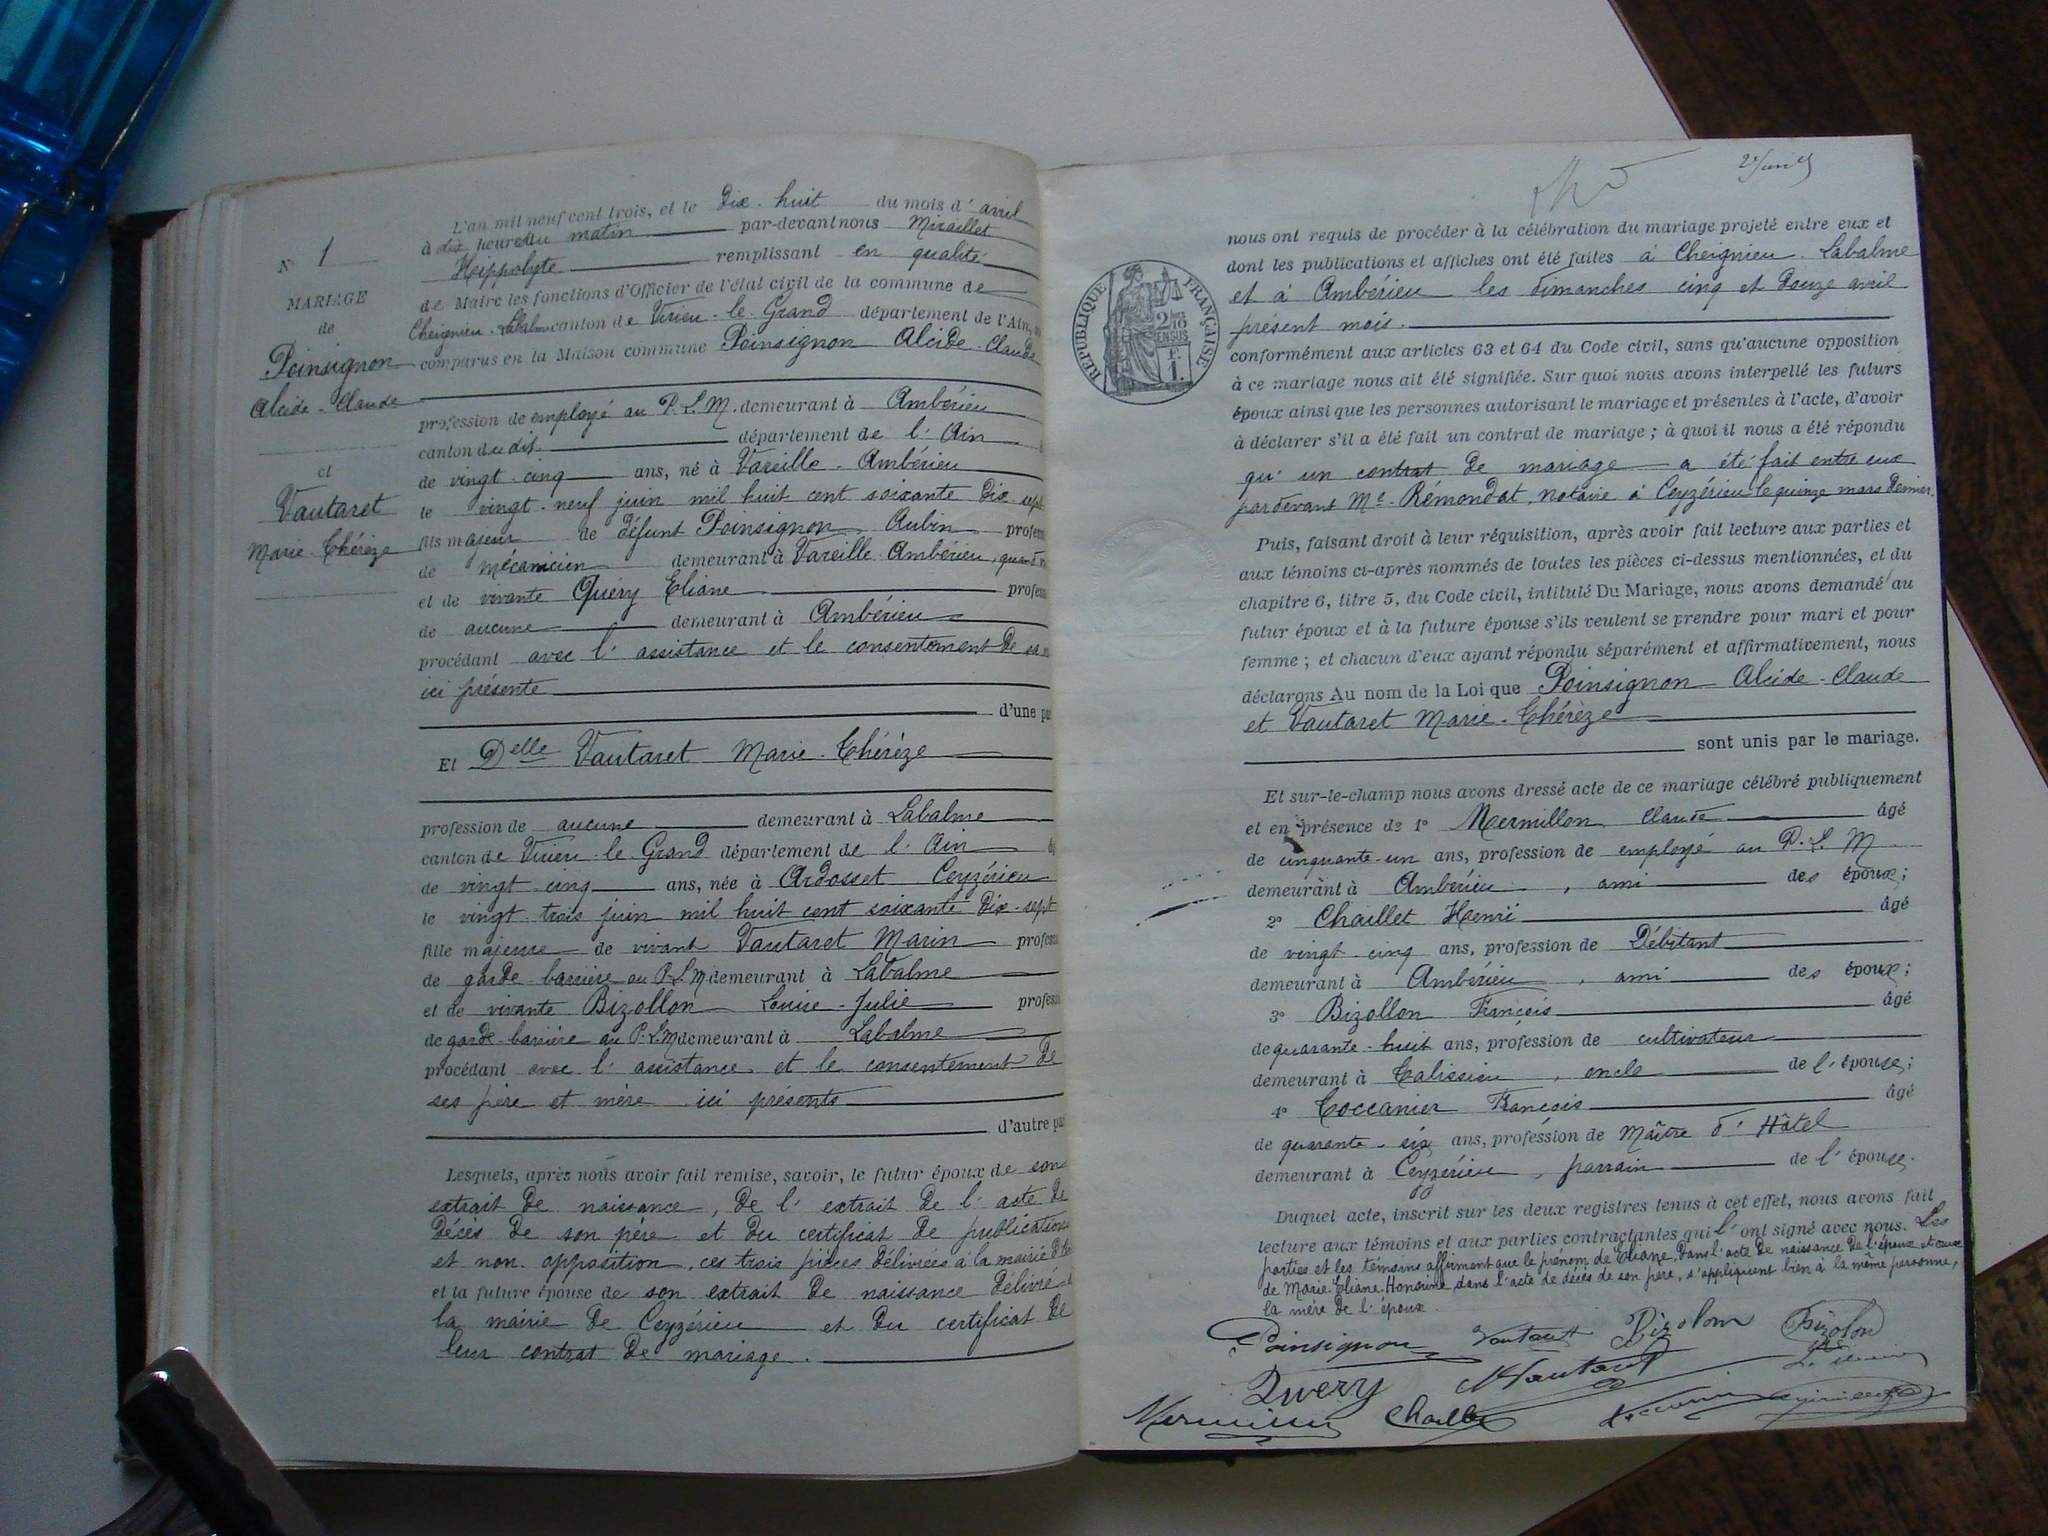 N° 1
MARIAGE
de
Poinsignon
Alcide-Claude
et
Vautaret
Marie-Thérèze
L'an mil neuf cent trois, et le dix-huit du mois d'avril
à dix heures du matin par-devant nous Miraillet
Hippolyte remplissant en qualité
de Maire les fonctions d'Officier de l'état civil de la commune de
Cheignieu-Labalme canton de Virieu-le-Grand département de l'Ain,
comparus en la Maison commune Poinsignon Alcide-Claude
profession de employé au P.L.M. demeurant à Ambérieu
canton du dit département de l'Ain
de vingt-cinq ans, né à Vareille-Ambérieu
le vingt-neuf juin mil huit cent soixante dix-sept
fils majeur de défunt Poinsignon Aubin profess
de mécanicien demeurant à Vareille-Ambérieu, quand
et de vivante Quéry Eliane profess
de aucune demeurant à Ambérieu
procédant avec l'assistance et le consentement de sa
ici présente
d'une pa
Et Delle Vautaret Marie-Thérèze
profession de aucune demeurant à Labalme
canton de Virieu-le-Grand département de l'Ain
de vingt-cinq ans, née à Ardosset Ceyzérieu
le vingt-trois juin mil huit cent soixante dix-sept
fille majeure de vivant Vautaret Marin profess
de garde-barrière au P.L.M demeurant à Labalme
et de vivante Bizollon Louise-Julie profess
de garde-barrière au P.L.M demeurant à Labalme
procédant avec l'assistance et le consentement de
ses père et mère ici présents
d'autre pa
Lesquels, après nous avoir fait remise, savoir, le futur époux de son
extrait de naissance, de l'extrait de l'acte de
décès de son père et du certificat de publications
et non opposition, ces trois pièces délivrées à la mairie
et la future épouse de son extrait de naissance délivré
la mairie de Ceyzérieu et du certificat de
leur contrat de mariage.
nous ont requis de procéder à la célébration du mariage projeté entre eux et
dont les publications et affiches ont été faites à Cheignieu-Labalme
et à Ambérieu les dimanches cinq et douze avril
présent mois.
RÉPUBLIQUE FRANÇAISE
conformément aux articles 63 et 64 du Code civil, sans qu'aucune opposition
à ce mariage nous ait été signifiée. Sur quoi nous avons interpellé les futurs
époux ainsi que les personnes autorisant le mariage et présentes à l'acte, d'avoir
à déclarer s'il a été fait un contrat de mariage ; à quoi il nous a été répondu
qu'un contrat de mariage a été fait entre eux
pardevant Me Rémondat, notaire à Ceyzérieu le quinze mars dernier.
Puis, faisant droit à leur réquisition, après avoir fait lecture aux parties et
aux témoins ci-après nommés de toutes les pièces ci-dessus mentionnées, et du
chapitre 6, titre 5, du Code civil, intitulé Du Mariage, nous avons demandé au
futur époux et à la future épouse s'ils veulent se prendre pour mari et pour
femme ; et chacun d'eux ayant répondu séparément et affirmativement, nous
déclarons Au nom de la Loi que Poinsignon Alcide-Claude
et Vautaret Marie-Thérèze
sont unis par le mariage.
Et sur-le-champ nous avons dressé acte de ce mariage célébré publiquement
et en présence de 1° Mermillon Claude âgé
de cinquante-un ans, profession de employé au P.L.M
demeurant à Ambérieu, ami des époux;
2° Chaillet Henri âgé
de vingt-cinq ans, profession de Débitant
demeurant à Ambérieu, ami des époux;
3° Bizollon François âgé
de quarante-huit ans, profession de cultivateur
demeurant à Talissieu, oncle de l'épouse;
4° Coccanier François âgé
de quarante-six ans, profession de Maître d'Hôtel
demeurant à Ceyzérieu, parrain de l'épouse.
Duquel acte, inscrit sur les deux registres tenus à cet effet, nous avons fait
lecture aux témoins et aux parties contractantes qui l'ont signé avec nous. Les
parties et les témoins affirment que le prénom de Eliane, dans l'acte de naissance de l'époux et ceux
de Marie-Eliane-Honorine, dans l'acte de décès de son père, s'appliquent bien à la même personne,
la mère de l'époux.
Poinsignon Vautaret Bizolon Bizolon
Query Vautaret
Mermillon Chaillet